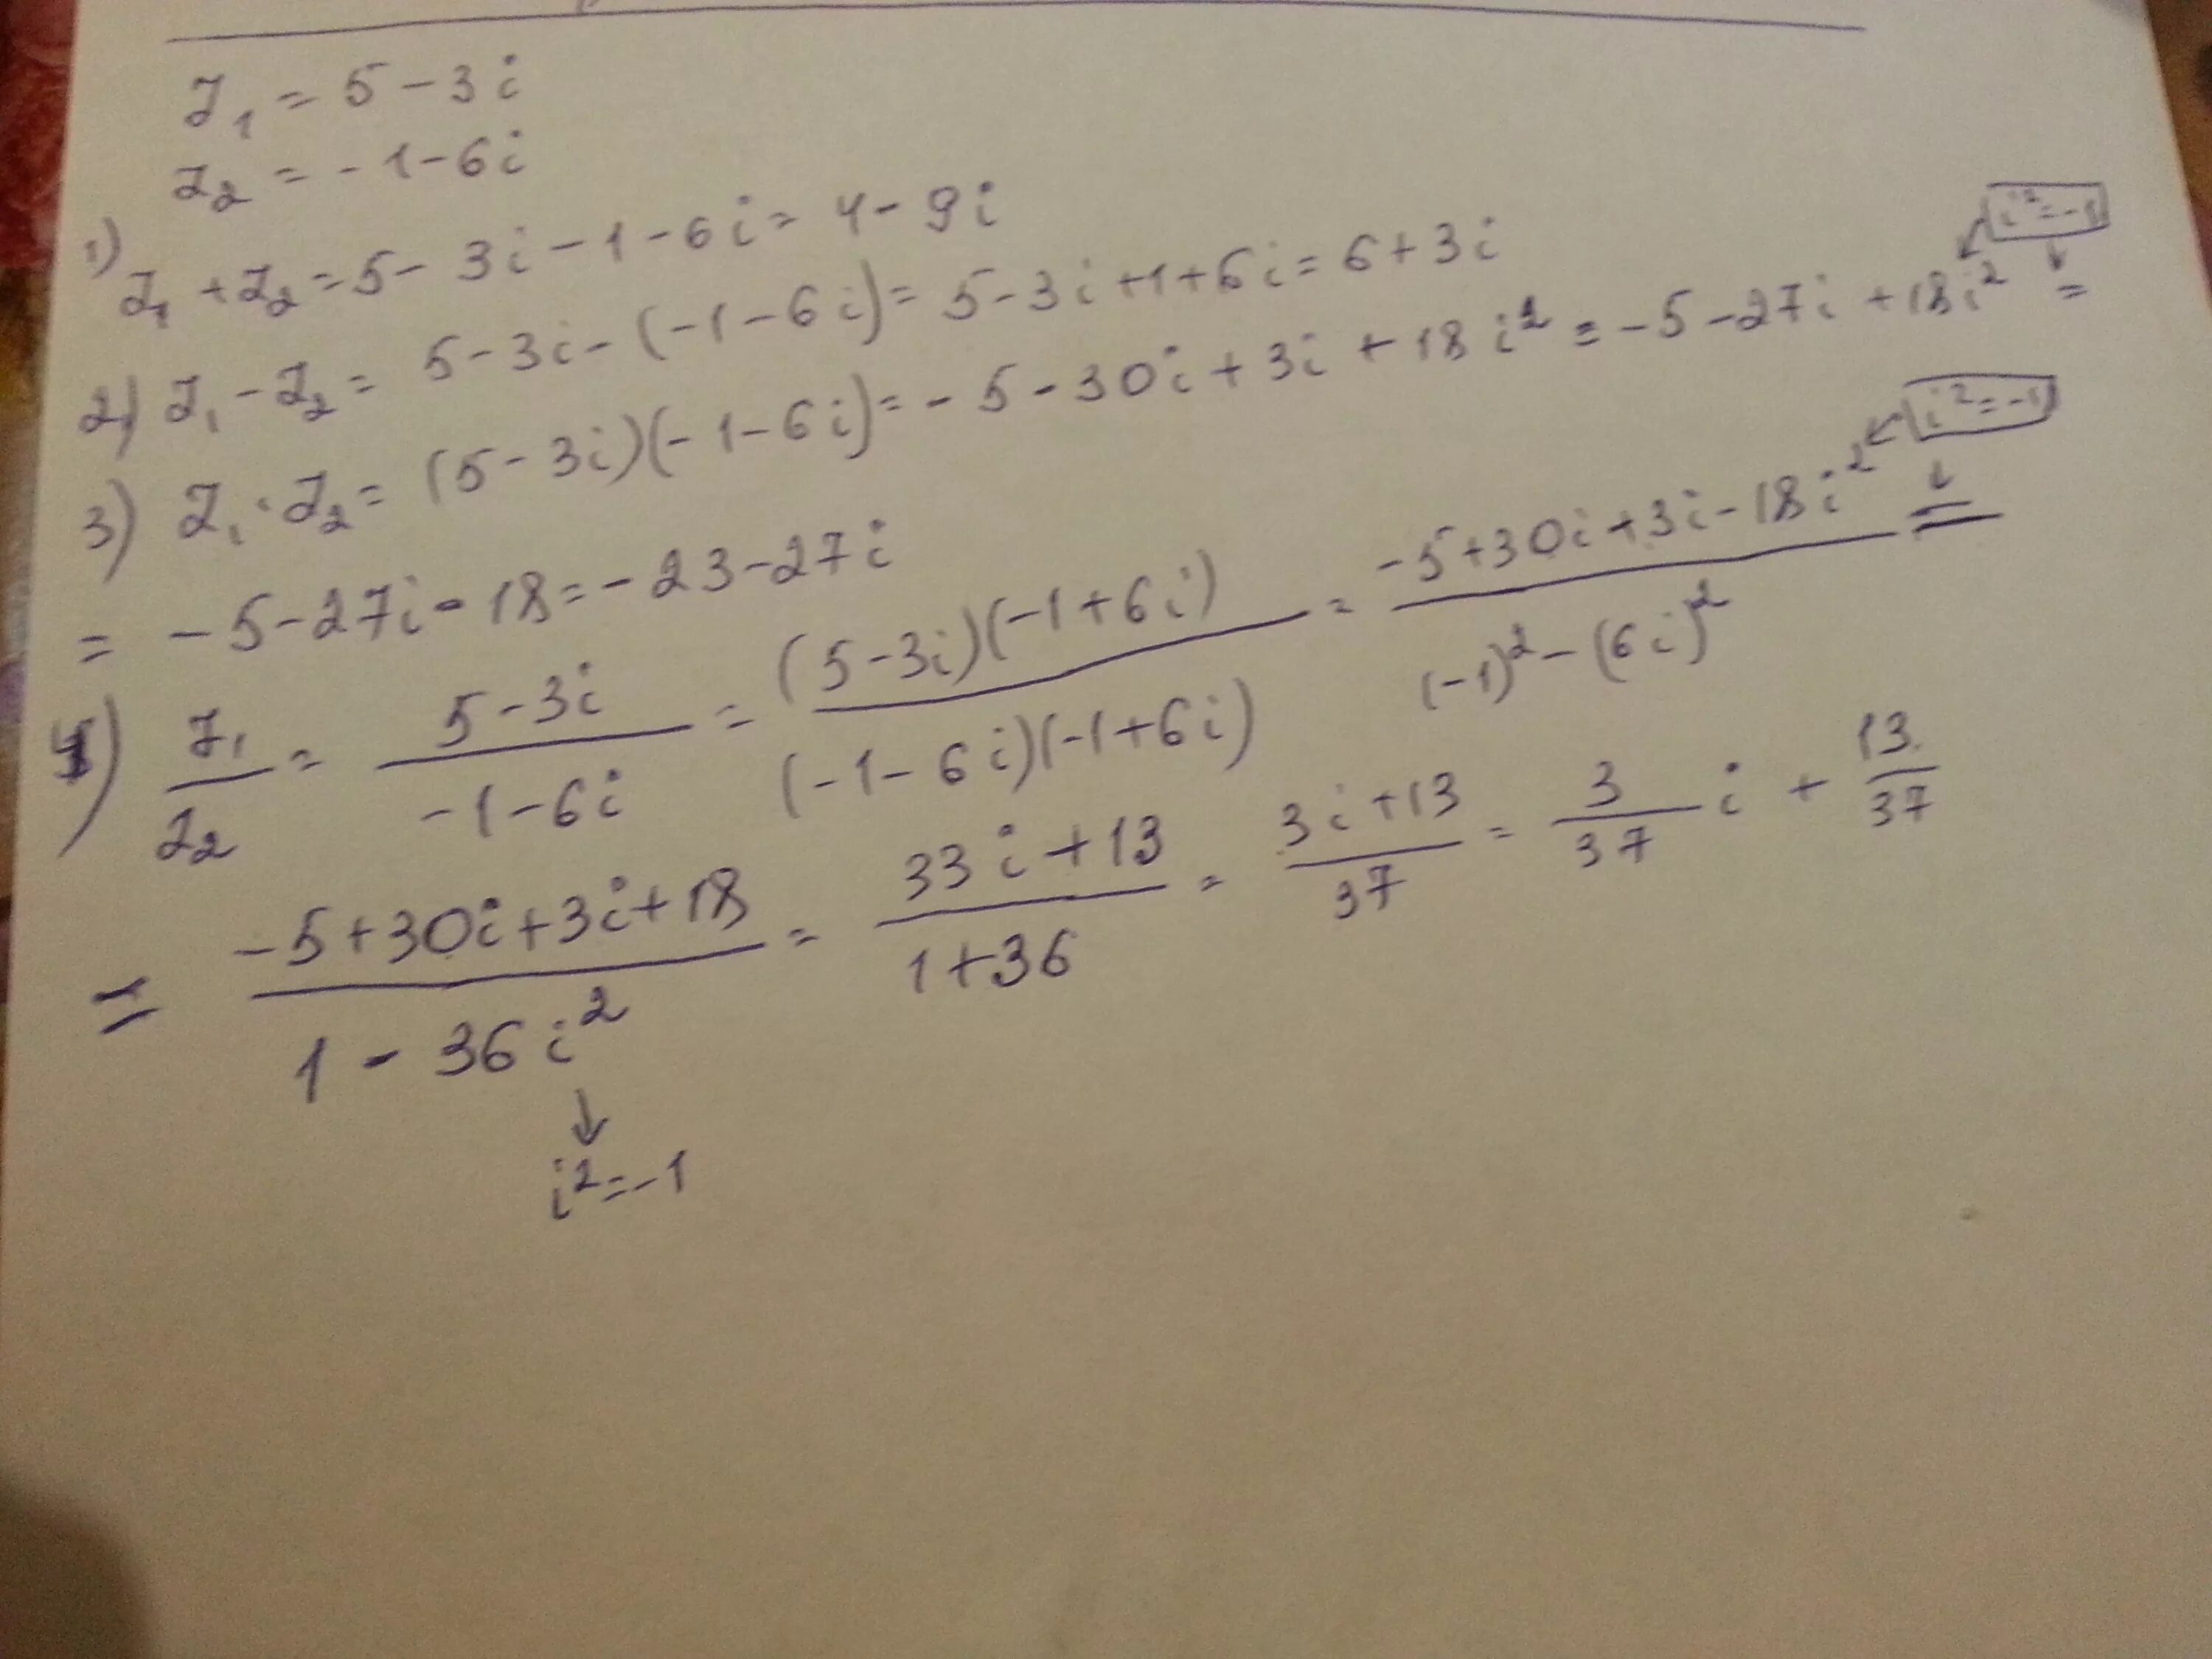 z₁ = 5 - 3i
z₂ = - 1 - 6i
1) z₁ + z₂ = 5 - 3i - 1 - 6i = 4 - 9i
2) z₁ - z₂ = 5 - 3i - (-1 - 6i) = 5 - 3i + 1 + 6i = 6 + 3i
i² = -1
3) z₁ · z₂ = (5 - 3i)(-1 - 6i) = - 5 - 30i + 3i + 18i² = -5 - 27i + 18i² =
= - 5 - 27i - 18 = - 23 - 27i
i² = -1
4) z₁/z₂ = (5 - 3i)/(-1 - 6i) = ((5 - 3i)(-1 + 6i))/((-1 - 6i)(-1 + 6i)) = (-5 + 30i + 3i - 18i²)/((-1)² - (6i)²) =
= (-5 + 30i + 3i + 18)/(1 - 36i²) = (33i + 13)/(1 + 36) = (3i + 13)/37 = 3/37 i + 13/37
↓
i² = -1